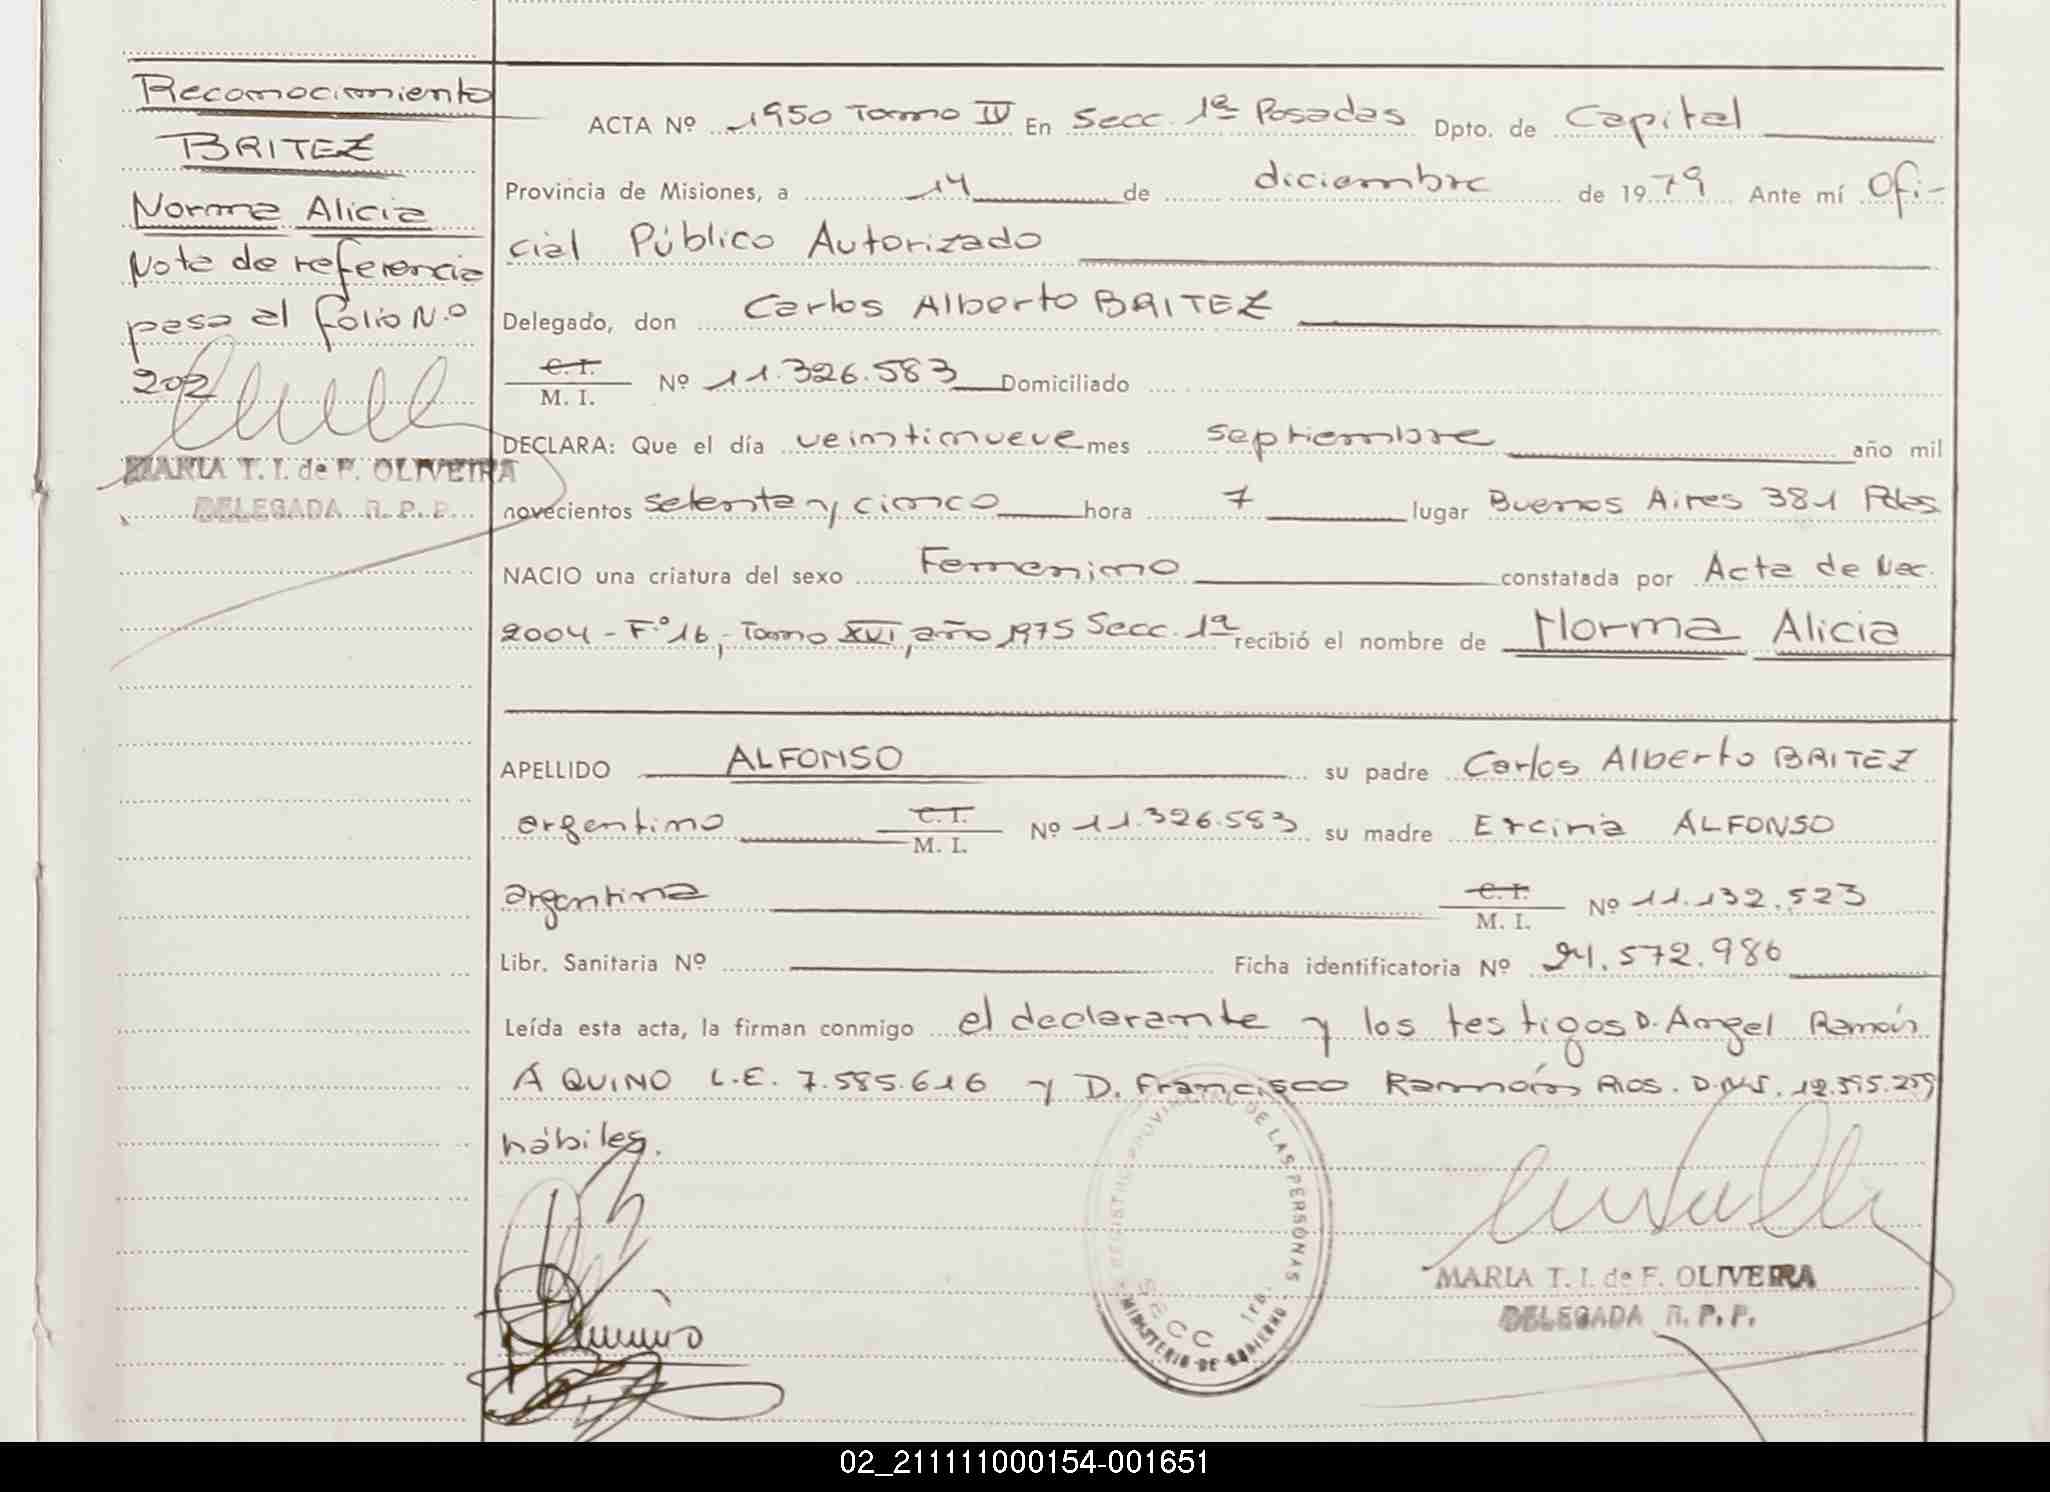 Reconocimiento
BRITEZ
Norma Alicia
Nota de referencia
pasa al folio N.o
202
MARIA T. I. de F. OLIVEIRA
DELEGADA R. P. P.
ACTA Nº 1950 Tomo IV En Secc. 1ª Posadas Dpto. de Capital
Provincia de Misiones, a 14 de diciembre de 1979 Ante mí Ofi-
cial Público Autorizado
Delegado, don Carlos Alberto BRITEZ
C. I.
M. I. Nº 11.326.583 Domiciliado
DECLARA: Que el día veintinueve mes septiembre año mil
novecientos setenta y cinco hora 7 lugar Buenos Aires 381 Pdas
NACIO una criatura del sexo Femenino constatada por Acta de Nac.
2004 - Fº 16, Tomo XVI, año 1975 Secc. 1ª recibió el nombre de Norma Alicia
APELLIDO ALFONSO su padre Carlos Alberto BRITEZ
argentino C. I. M. I. Nº 11.326.583 su madre Ercina ALFONSO
argentina C. I. M. I. Nº 11.132.523
Libr. Sanitaria Nº Ficha identificatoria Nº 24.572.986
Leída esta acta, la firman conmigo el declarante y los testigos D. Angel Ramón
AQUINO L.E. 7.585.616 y D. Francisco Ramón Rios. D.N.I. 12.395.259
hábiles.
REGISTRO PROVINCIAL DE LAS PERSONAS
SECC 1ra.
MINISTERIO DE GOBIERNO
MARIA T. I. de F. OLIVEIRA
DELEGADA R. P. P.
02_211111000154-001651